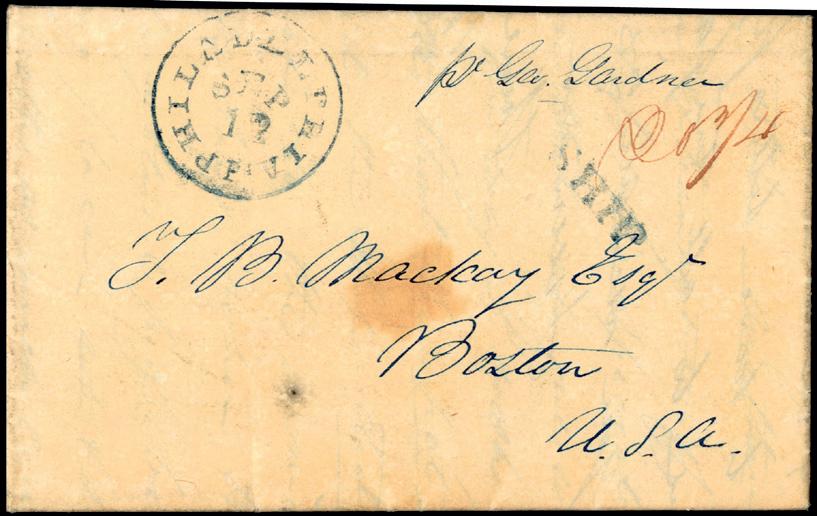 PHILADELPHIA Pa
SEP
19
pr Geo. Gardner
20 3/4
SHIP
T. B. Mackay Esqr
Boston
U. S. A.